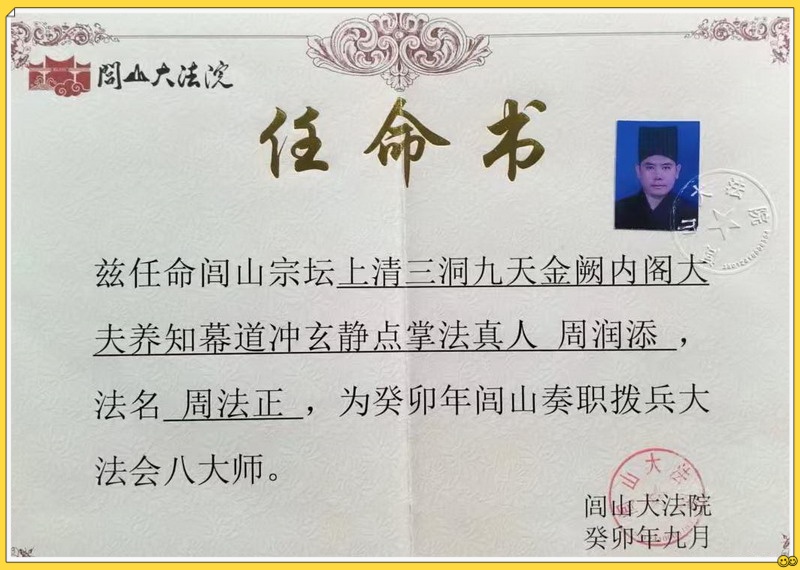 閭山大法院
任命书
兹任命闾山宗坛上清三洞九天金阙内阁大
夫养知幕道冲玄静点掌法真人 周润添 ，
法名 周法正 ，为癸卯年闾山奏职拨兵大
法会八大师。
闾山大法院
癸卯年九月